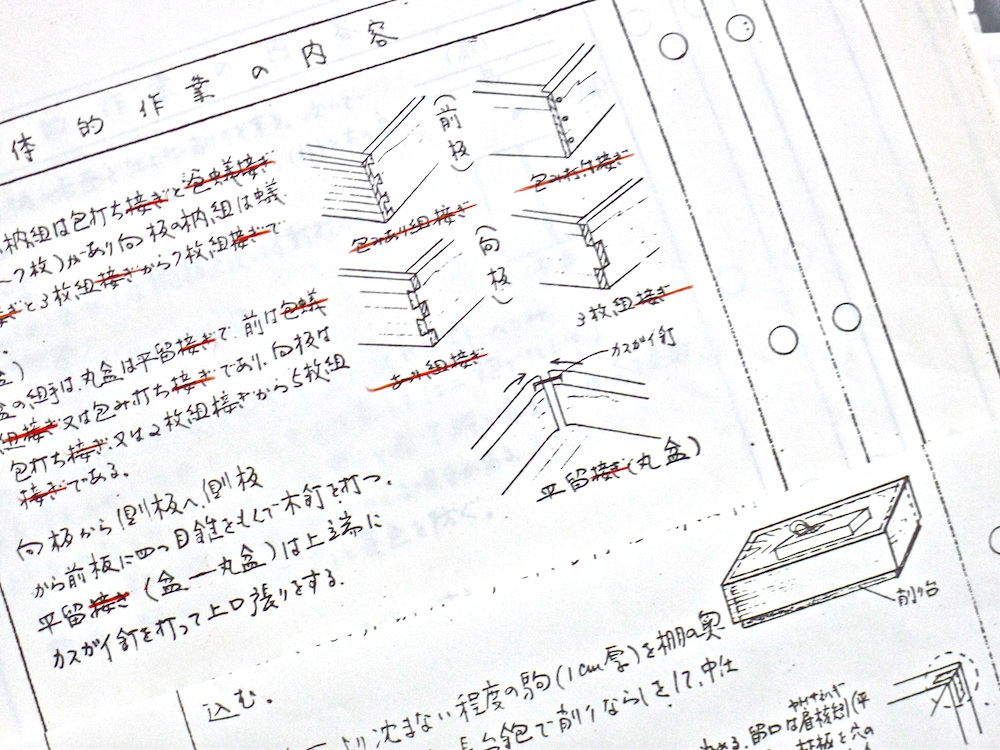 体的作業の内容
柄組は包打ち接ぎと包蟻接ぎ
〜7枚)があり向板の柄組は蟻
接ぎと3枚組接ぎから7枚組接ぎで
盆の組手は、丸盆は平留接ぎで、前は包蟻
組接ぎ又は包み打ち接ぎであり、向板は
包打ち接ぎ、又は2枚組接ぎから5枚組
接ぎである。
向板から側板へ、側板
から前板に四つ目錐をもんで木釘を打つ。
平留接ぎ(盆一丸盆)は上端に
カスガイ釘を打って上口張りをする。
(前板)
包みあり組接ぎ
包み打ち接ぎ
(向板)
あり組接ぎ
3枚組接ぎ
カスガイ釘
平留接ぎ(丸盆)
削り台
込む。
沈まない程度の駒(1cm厚)を棚の奥
台鉋で削りならしをして、中仕